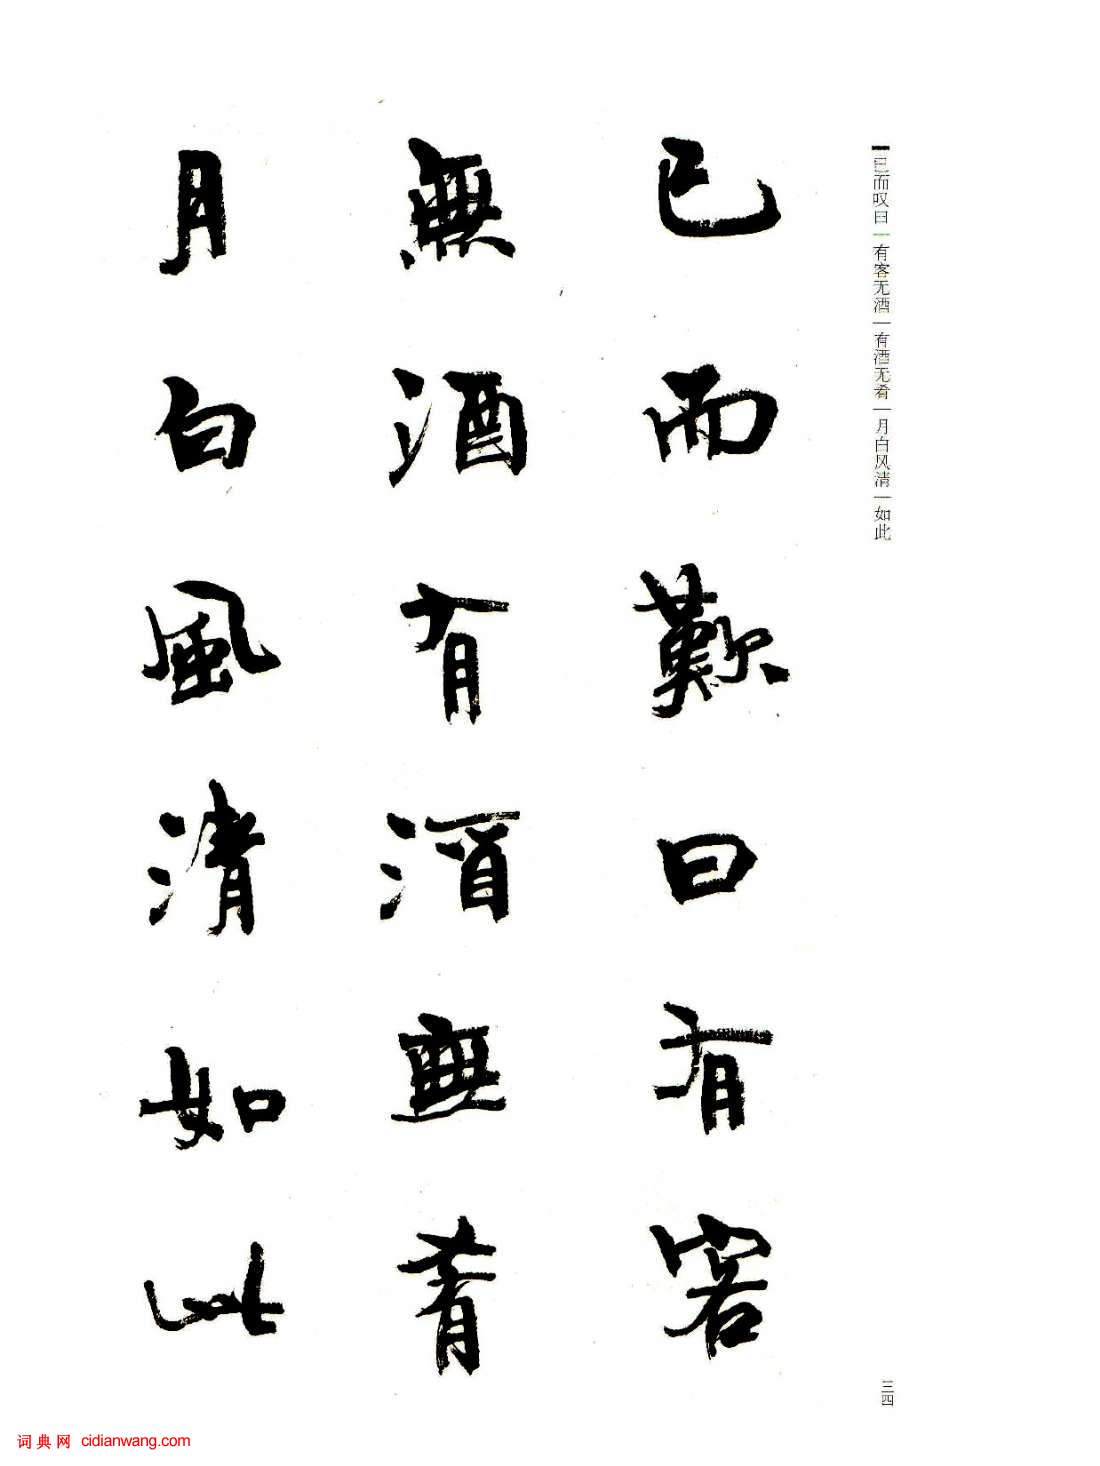 已而叹曰｜有客无酒｜有酒无肴｜月白风清｜如此
已而歎曰有客
無酒有酒無肴
月白風清如此
三四
词典网 cidianwang.com